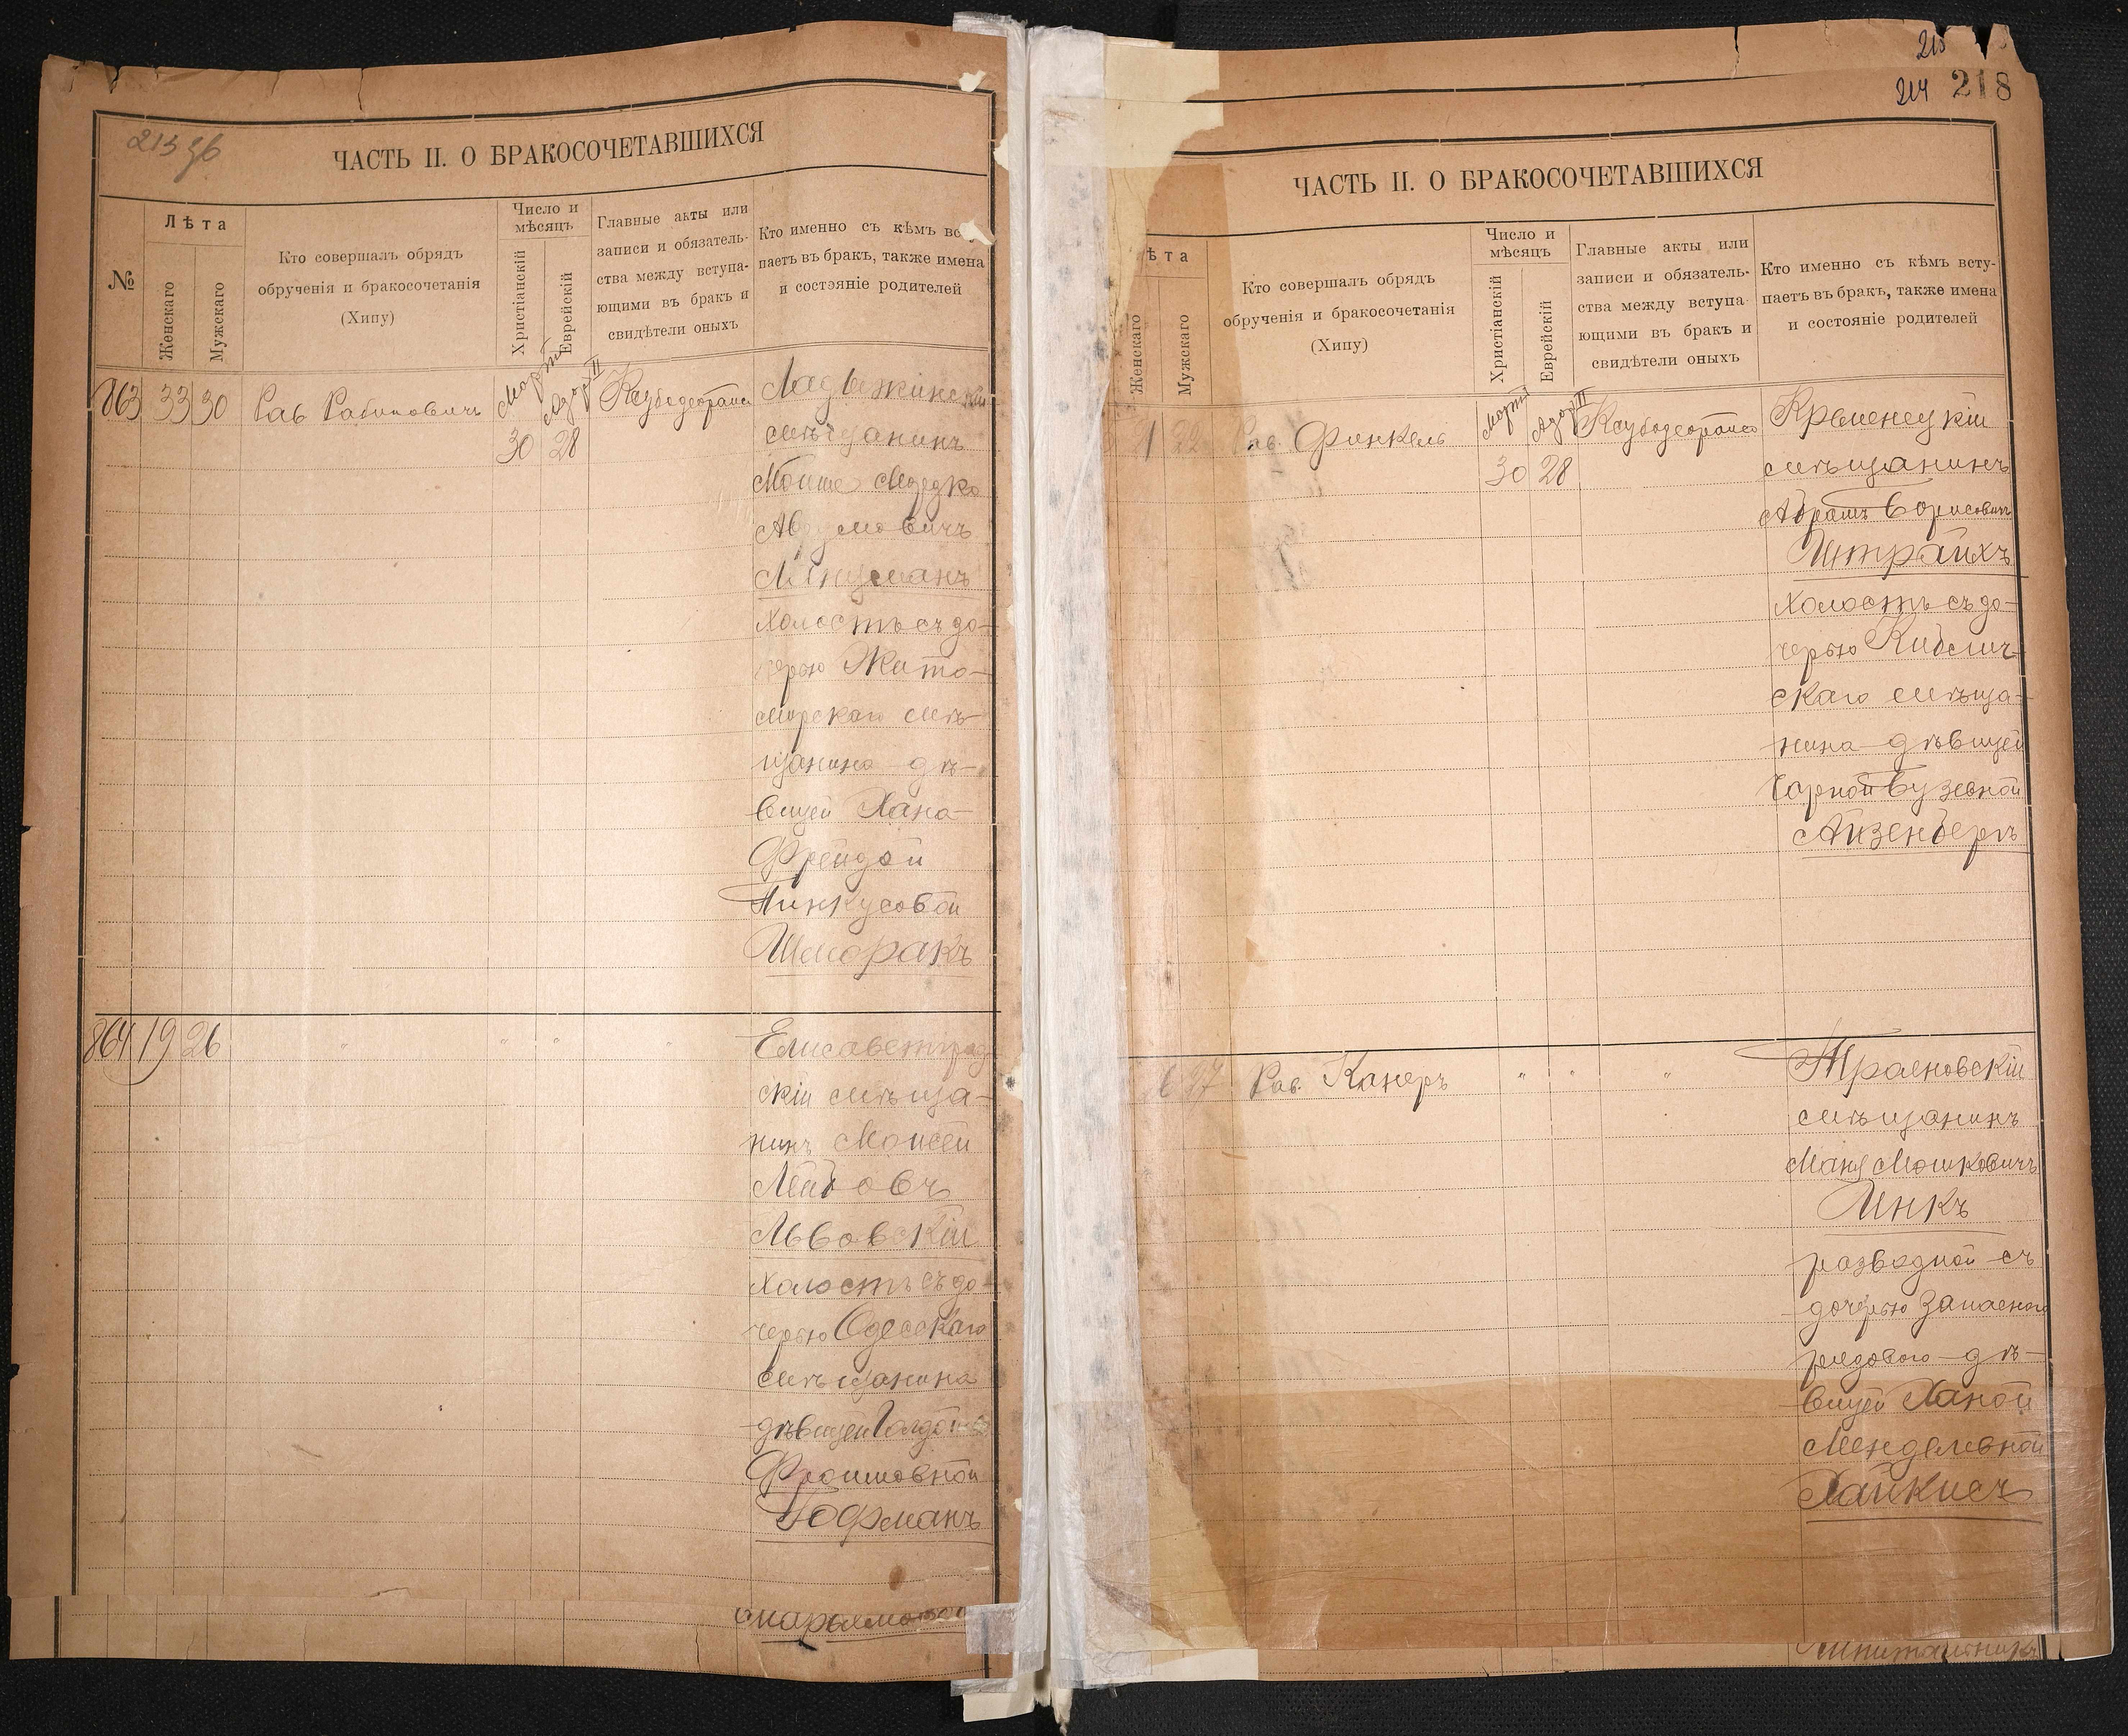 213 об
ЧАСТЬ II. О БРАКОСОЧЕТАВШИХСЯ
№
Лѣта
Женскаго
Мужскаго
Кто совершалъ обрядъ
обрученія и бракосочетанія
(Хипу)
Число и
мѣсяцъ
Христіанскій
Еврейскій
Главные акты или
записи и обязатель-
ства между вступа-
ющими въ бракъ и
свидѣтели оныхъ
Кто именно съ кѣмъ всту
паетъ въ бракъ, также имена
и состояніе родителей
863 33 30 Рав Рабиновичъ
Мартъ
Адаръ II
30 28
мѣщанинъ
Мойше
холостъ съ до-
черью Жито-
мирскаго мѣ-
щанина дѣ-
вицей Хана-
Фрейдой
Пинкусовой
Шморакъ
864 19 26 " " " "
Елисаветград
скій мѣща-
нинъ Моисей
Лейбовъ
Львовскій
холостъ съ до-
черью Одесскаго
мѣщанина
дѣвицей
Фроимовной
Гофманъ
215
214 218
ЧАСТЬ II. О БРАКОСОЧЕТАВШИХСЯ
ѣта
Женскаго
Мужскаго
Кто совершалъ обрядъ
обрученія и бракосочетанія
(Хипу)
Число и
мѣсяцъ
Христіанскій
Еврейскій
Главные акты или
записи и обязатель-
ства между вступа-
ющими въ бракъ и
свидѣтели оныхъ
Кто именно съ кѣмъ всту-
паетъ въ бракъ, также имена
и состояніе родителей
21 22 Рав. Финкель
Мартъ
Адаръ II
30 28
Кременецкій
мѣщанинъ
Абрамъ Борисовичъ
Штрайхъ
холостъ съ до-
черью
скаго мѣща-
нина дѣвицей
Айзенбергъ
Рав. Канеръ " " "
мѣщанинъ
Мошковичъ
Инкъ
разводной съ
дочерью запаснаго
рядового дѣ-
вицей Ханой
Менделевной
Хайкисъ